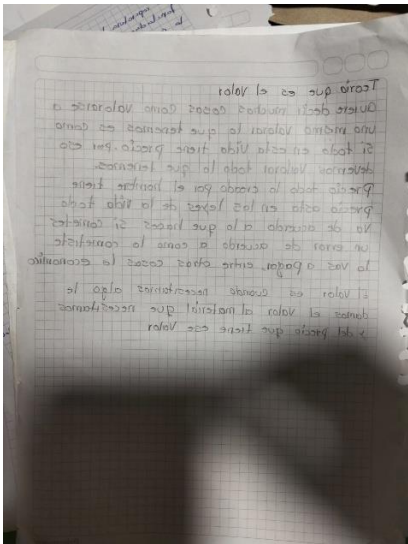 Teoria que es el valor
Quiere decir muchas cosas como valorarse a
uno mismo valorar lo que tenemos es como
si todo en esta vida tiene precio por eso
devemos valorar todo lo que tenemos.
precio todo lo creado por el hombre tiene
precio asta en las leyes de la vida todo
va de acuerdo a lo que haces si cometes
un error de acuerdo a como lo cometiste
lo vas a pagar, entre otras cosas lo economico
el valor es cuando necesitamos algo le
damos el valor al material que necesitamos
y del precio que tiene ese valor